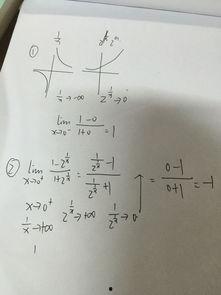 ①
1/x
2^x
1/x → -∞
2^(1/x) → 0
lim x→0⁻ (1-0)/(1+0) = 1
② lim x→0⁺ (1-2^(1/x))/(1+2^(1/x)) = (1/2^(1/x) - 1)/(1/2^(1/x) + 1) = (0-1)/(0+1) = -1
x→0⁺ 2^(1/x) → +∞ 1/2^(1/x) → 0
1/x → +∞